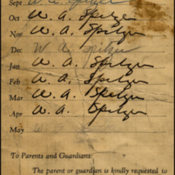 Sept W. A. Spitzer
Oct W. A. Spitzer
Nov W. A. Spitzer
Dec W. A. Spitzer
Jan W. A. Spitzer
Feb W. A. Spitzer
Mar W. A. Spitzer
Apr W. A. Spitzer
May
To Parents and Guardians:
The parent or guardian is kindly requested to